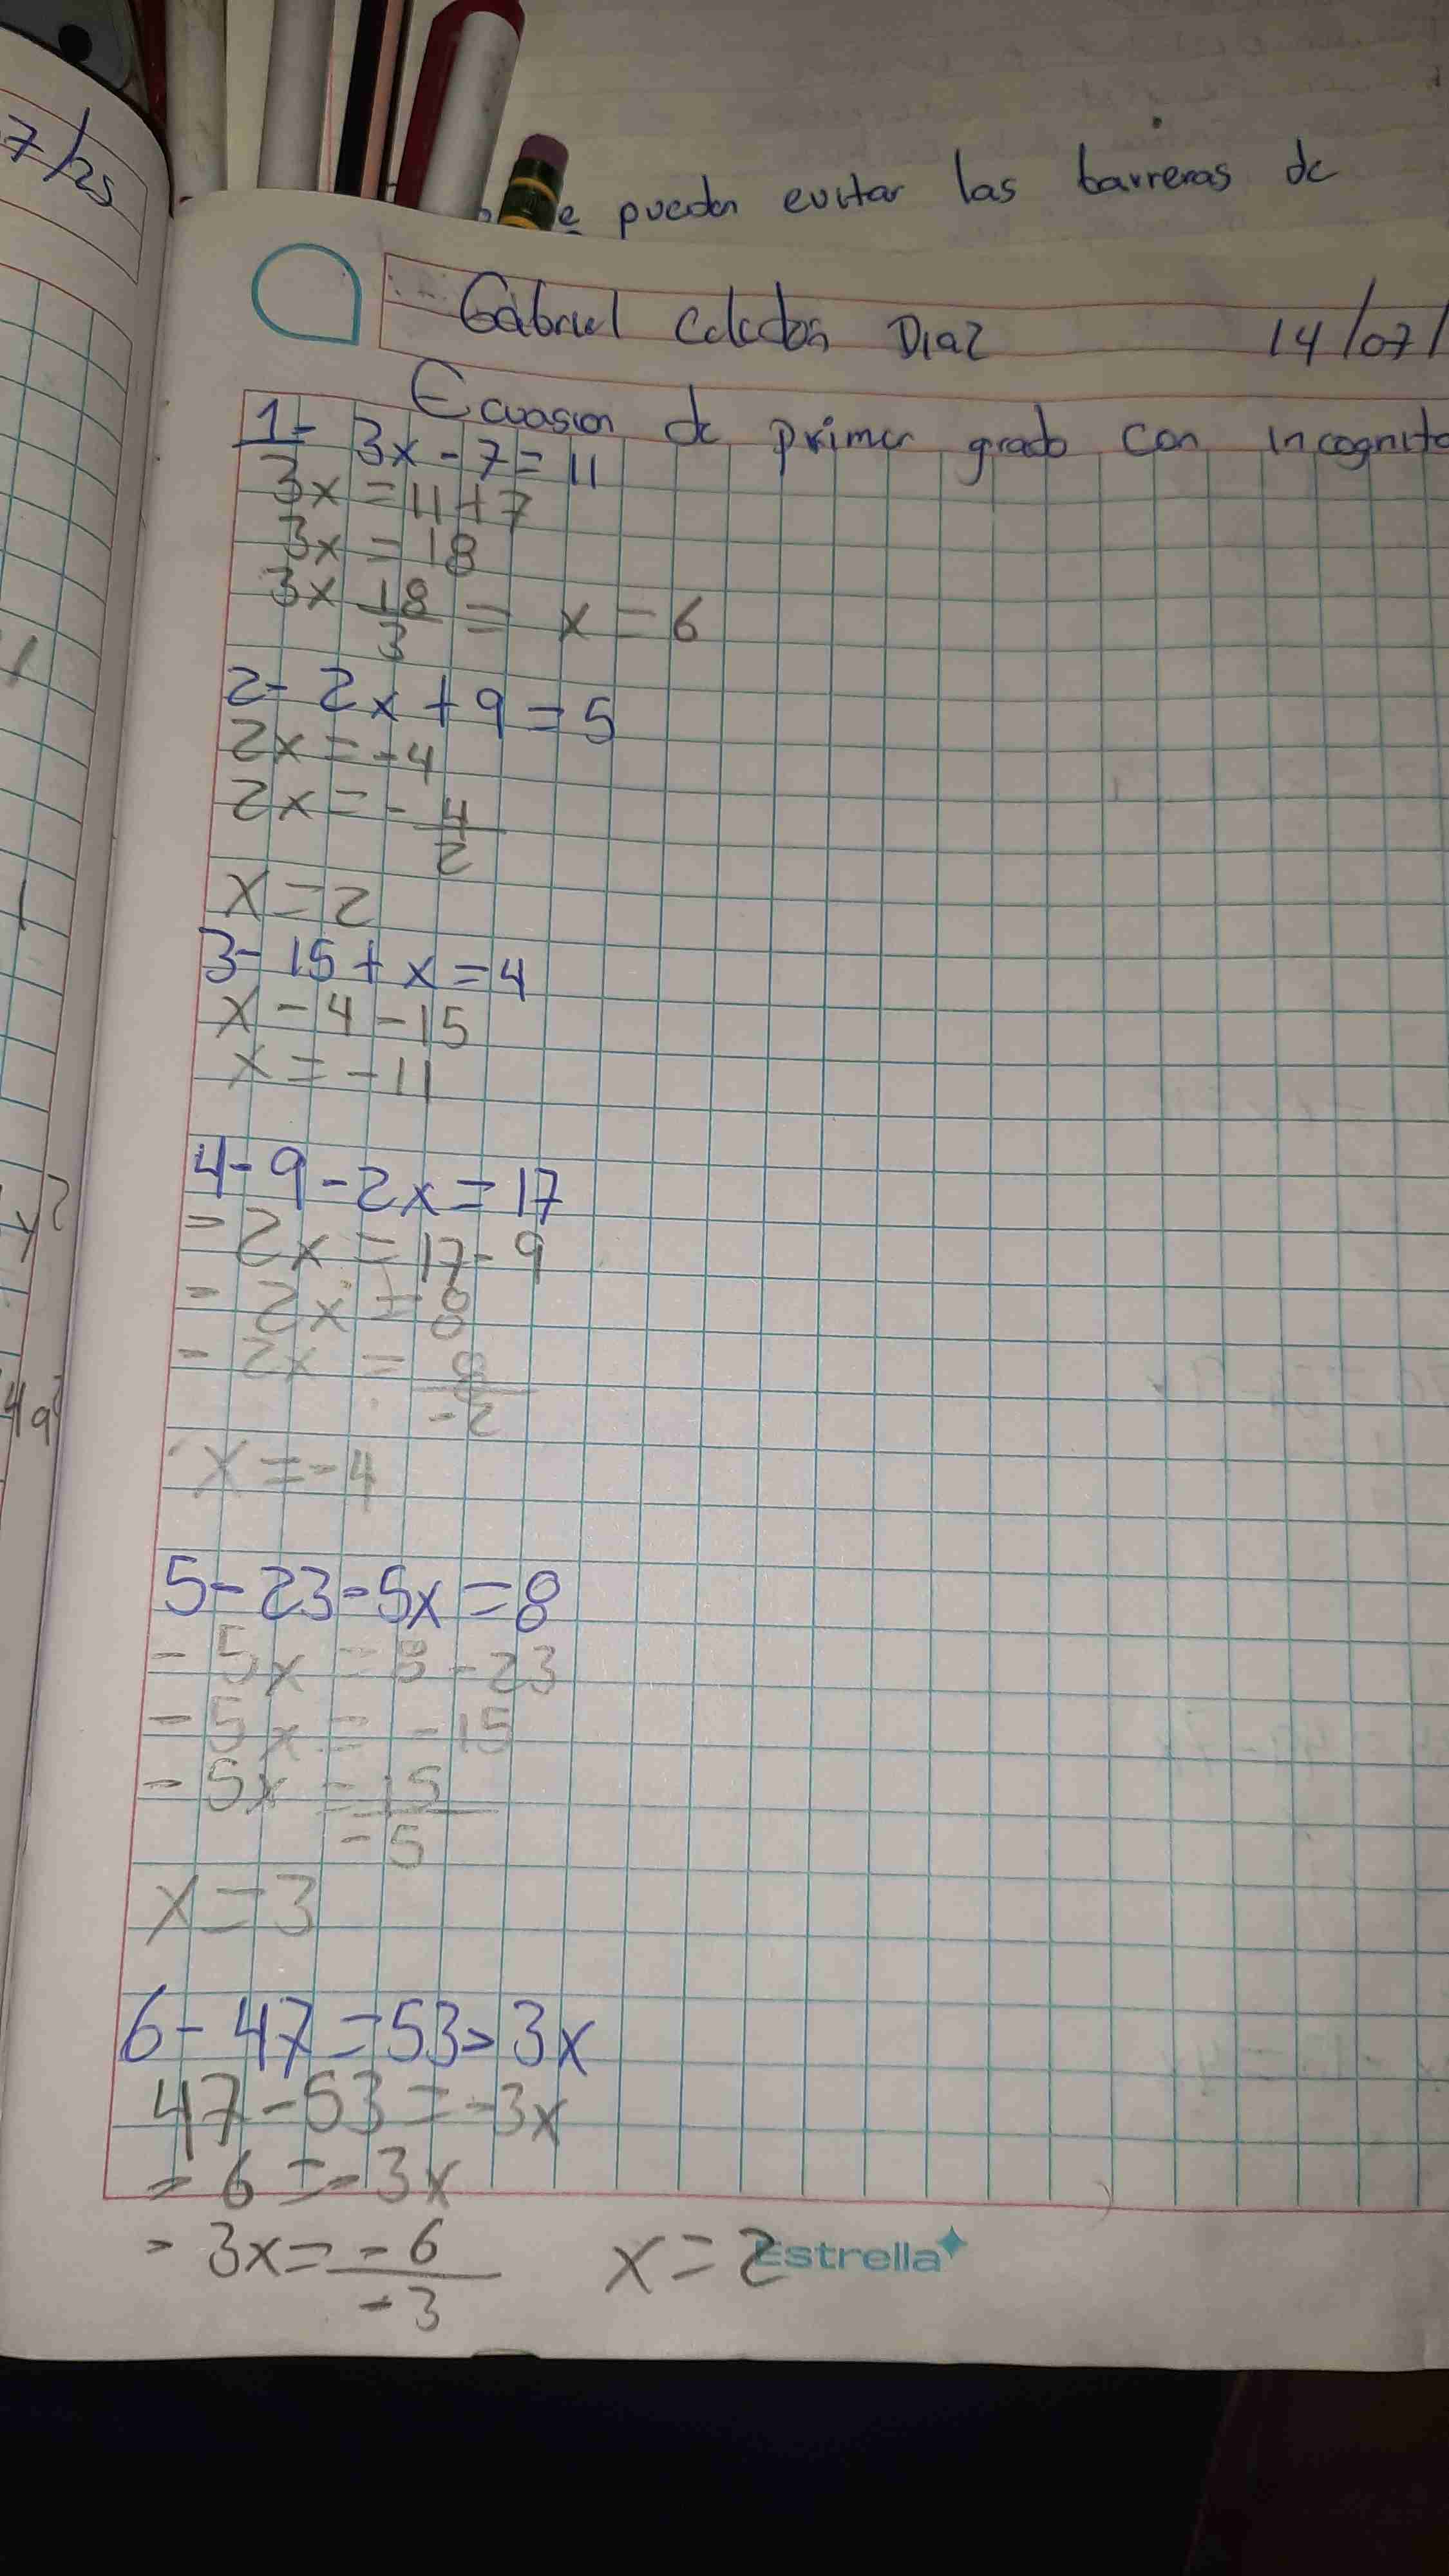 7/25
e pueden evitar las barreras de
Gabriel Celedon Diaz 14/07/
Ecuasion de primer grado con incognito
1- 3x - 7 = 11
3x = 11 + 7
3x = 18
3x 18/3 = x = 6
2- 2x + 9 = 5
2x = -4
2x = - 4/2
x = 2
3- 15 + x = 4
x - 4 - 15
x = -11
4- 9 - 2x = 17
- 2x = 17 - 9
- 2x = 8
- 2x = 8/-2
x = -4
5- 23 - 5x = 8
- 5x = 8 - 23
- 5x = -15
- 5x = -15/-5
x = 3
6- 47 = 53 - 3x
47 - 53 = -3x
- 6 = -3x
- 3x = -6/-3 x = 2
Estrella